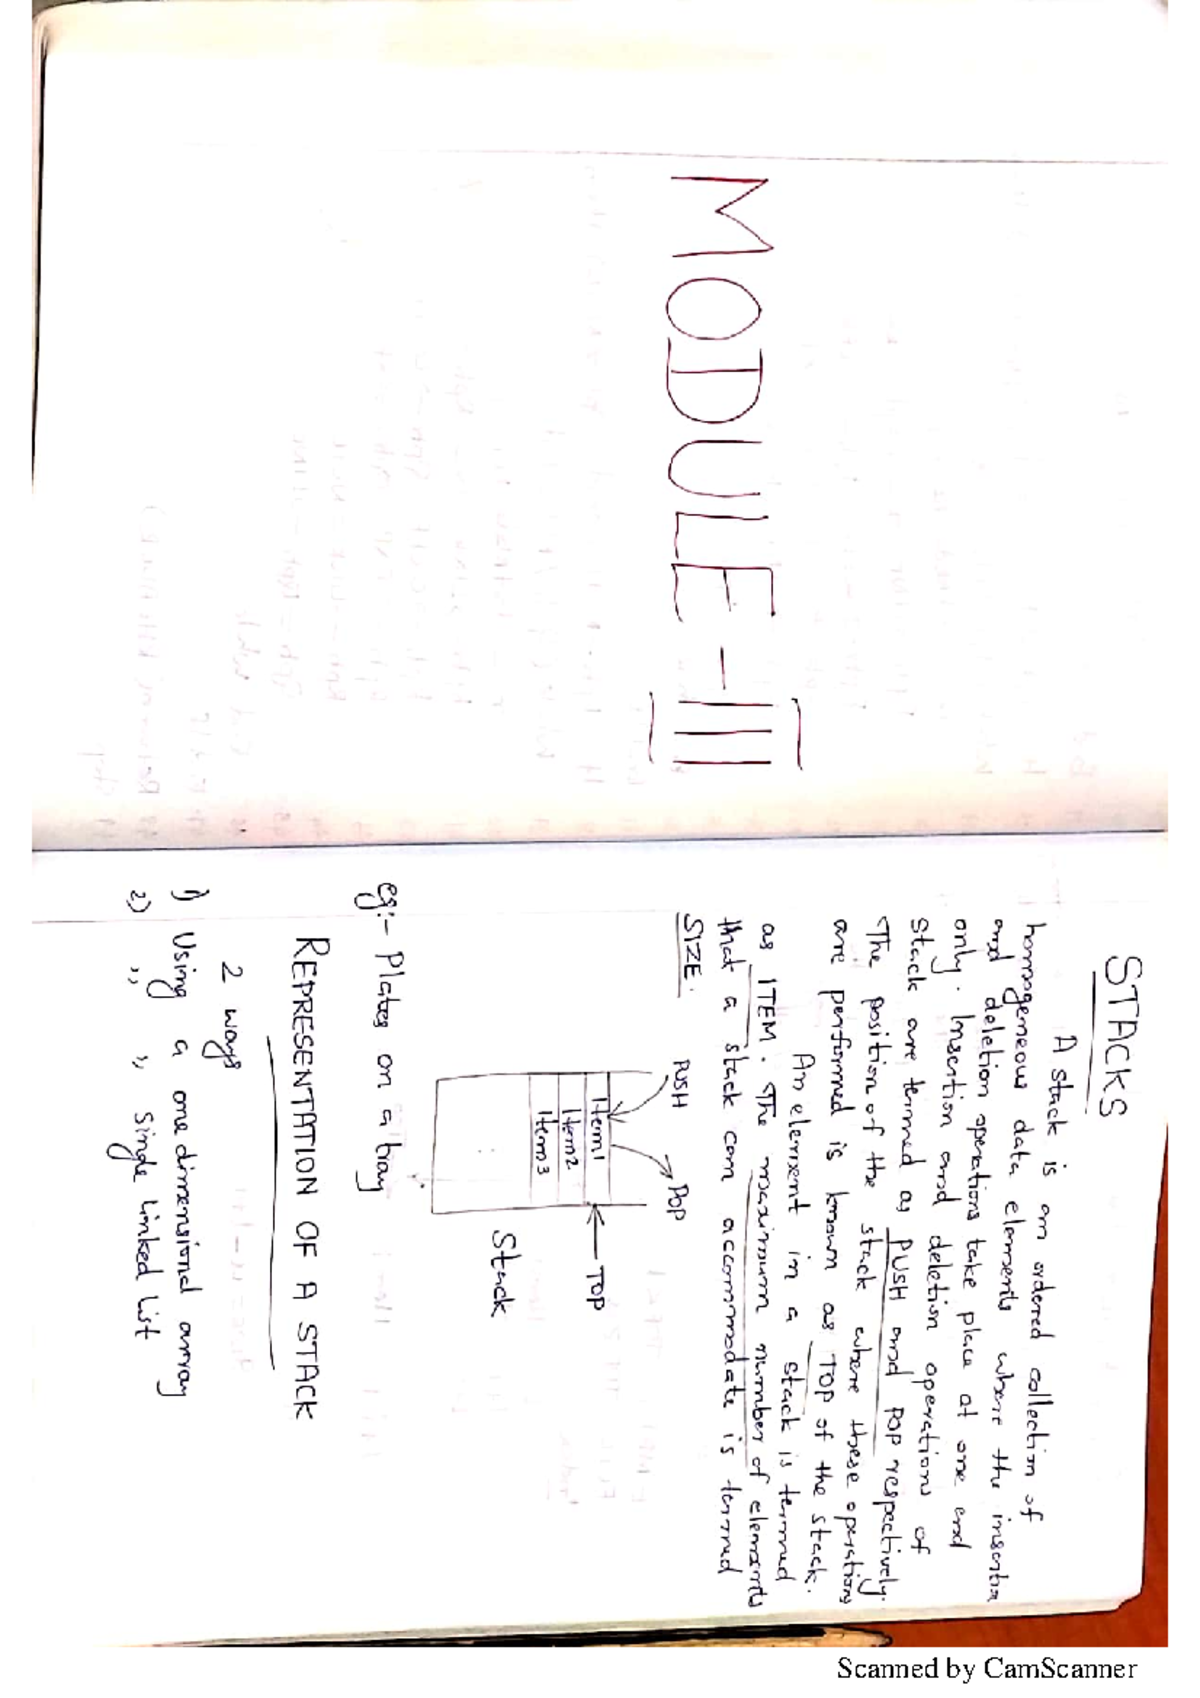 MODULE-III
STACKS
A stack is an ordered collection of
homogeneous data elements where the insertion
and deletion operations take place at one end
only. Insertion and deletion operations of
stack are termed as PUSH and POP respectively.
The position of the stack where these operations
are performed is known as TOP of the stack.
An element in a stack is termed
as ITEM. The maximum number of elements
that a stack can accommodate is termed
SIZE.
PUSH POP
Item1 TOP
Item2
Item3
Stack
eg:- Plates on a tray
REPRESENTATION OF A STACK
2 ways
1) Using a one dimensional array
2) ,, ,, single linked list
Scanned by CamScanner